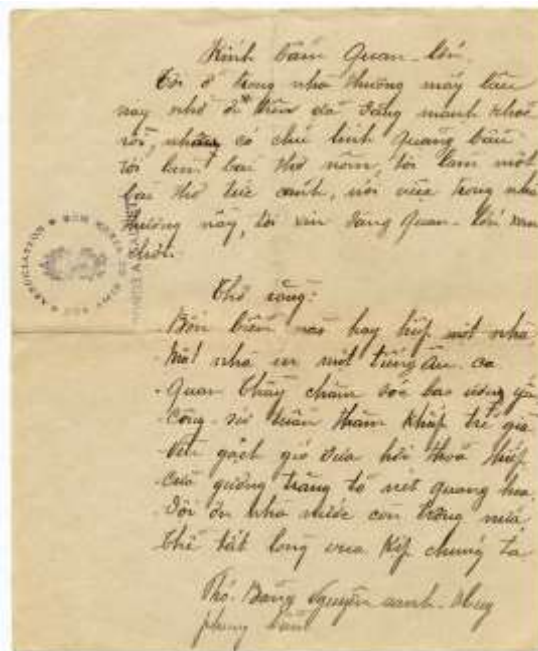 Kính bẩm Quan-lớn.
Tôi ở trong nhà thương mấy lâu
nay nhờ ơn trên đã đặng mạnh khoẻ
rồi, nhưng có chú lính quảng bảo
tôi làm bài thơ nôm, tôi làm một
bài thơ tức cảnh, nói việc trong nhà
thương này, tôi xin dâng Quan-lớn xem
chơi.
Thơ rằng:
Bốn biển nào hay hiệp một nhà
Một nhà in một tiếng âu-ca
Quan thầy chăm sóc bao
Công-sứ tuần thăm khắp trẻ già
gạch gió đưa hơi thoả
Cửa gương trăng tỏ nét quang hoa.
Đội ơn nhà nước còn trông nữa
Thế tất lòng vua kịp chúng ta.
Thơ Nguyễn
phụng bẩm